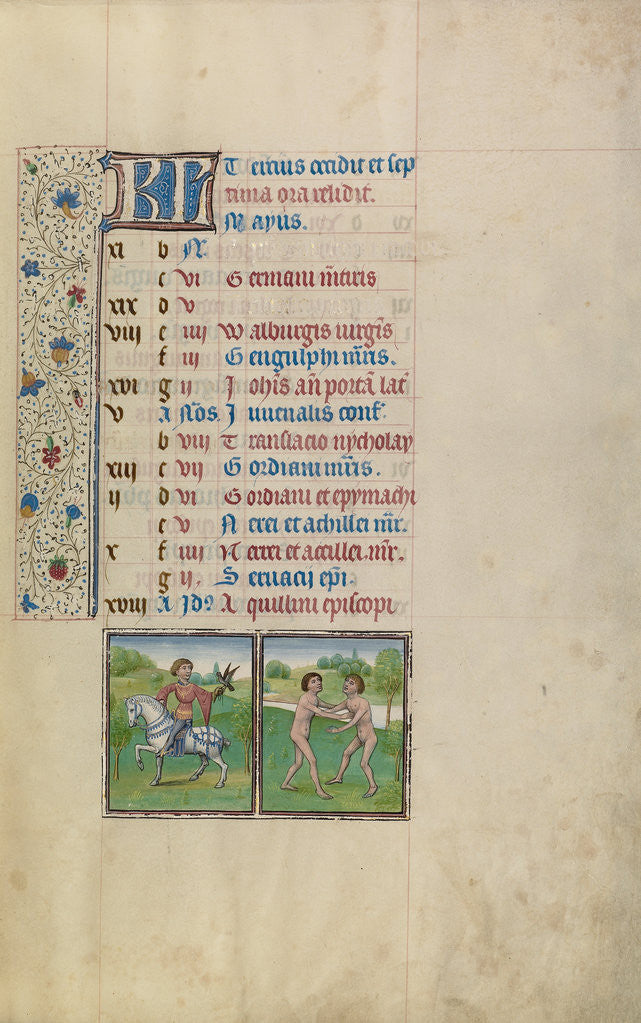 KL Tercius occidit et sep
tima ora relidit.
Mayus.
xi b N.
c vi Germani m̄tiris
xix d v
viii e iiii Walburgis uirgīs
f iii Gengulphi mr̄is.
xvi g ii. Joh̄is an̄ portā lat̄
v a Nōs. Juuenalis conf.
b viii Translacio nycholay
xiii c vii Gordiani mr̄is.
ii d vi Gordiani et epymachi
e v Nerei et achillei mr̄.
x f iiii Nerei et accillei. mr̄.
g ii. Seruacij ep̄i.
xviii a Jdꝰ Aquillini episcopi